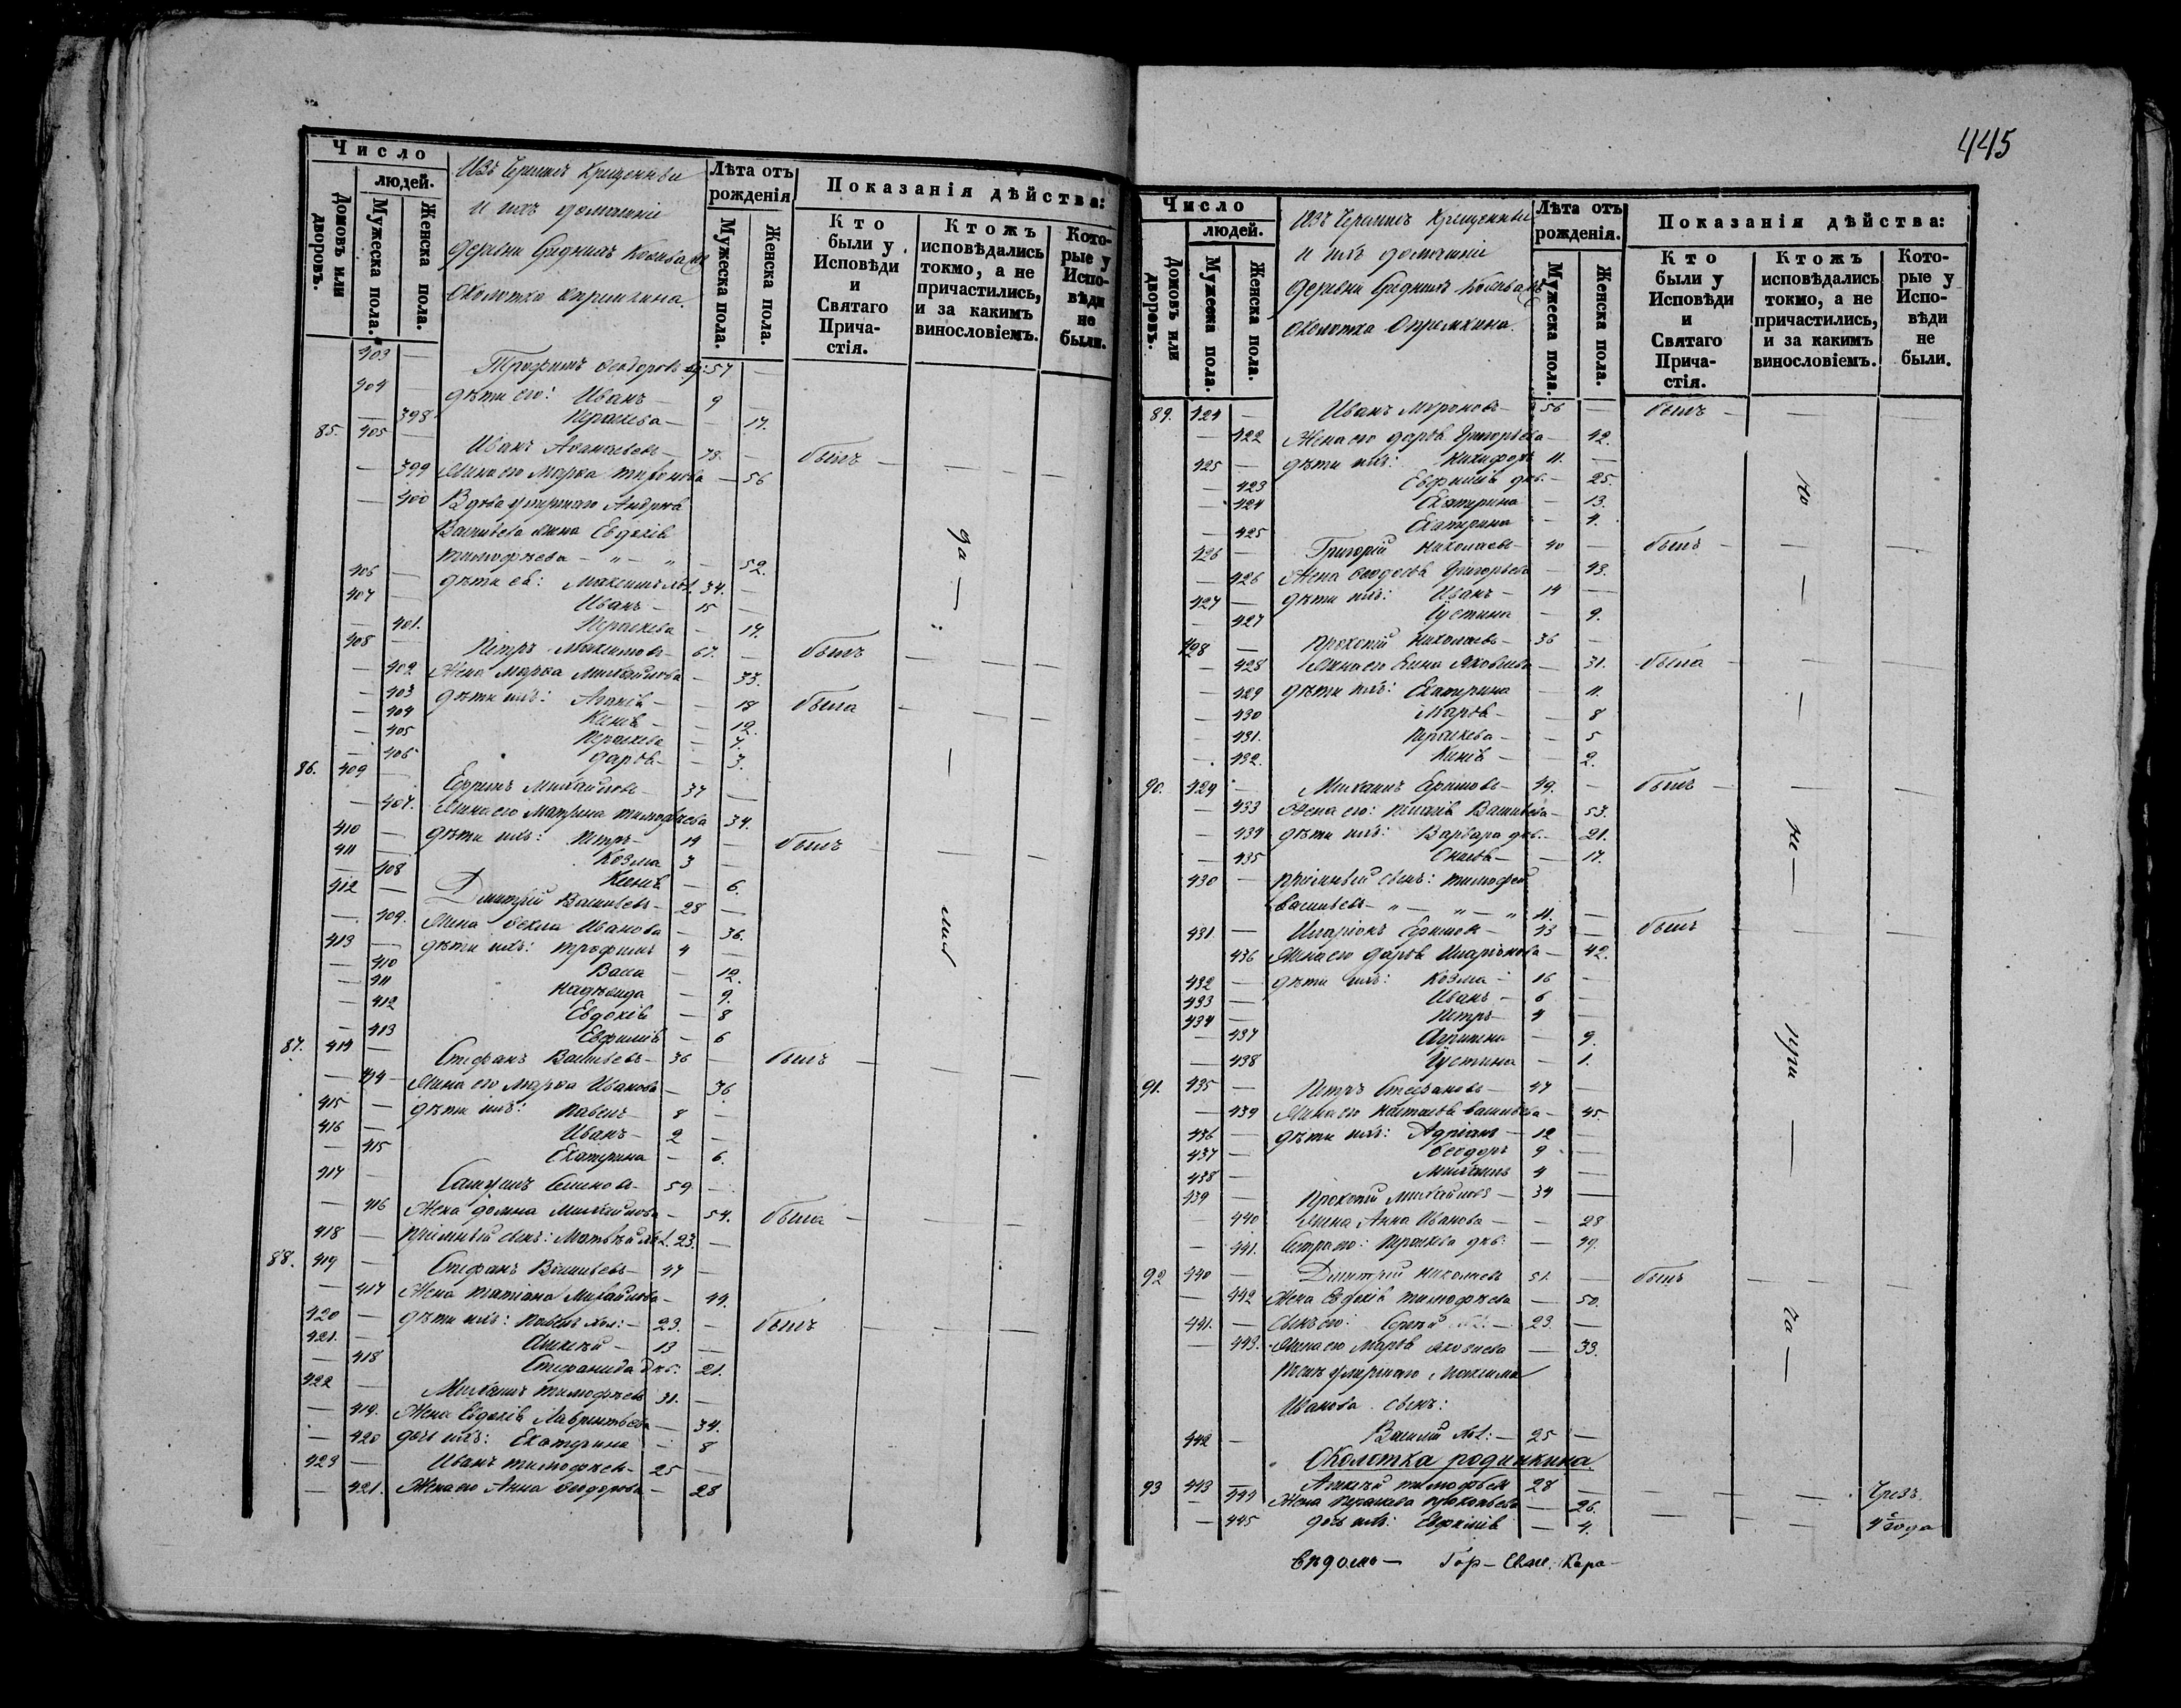 Число
людей.
Домовъ или дворовъ.
Мужеска пола.
Женска пола.
Изъ Черемисъ Крещенныи
и ихъ домашніе
деревни Среднихъ
Околотка
Лѣта отъ рожденія
Мужеска пола.
Женска пола.
Показанія дѣйства:
Кто были у Исповѣди и Святаго Причастія.
Ктожъ исповѣдались токмо, а не причастились, и за какимъ винословіемъ.
Которые у Исповѣди не были.
403 — Трофимъ Ѳеодоровъ вд: 57 —
404 — дѣти его: Иванъ — 9 —
— 398 Праскева — — 17.
85. 405 — Иванъ Аѳанасьевъ — 78. — былъ — — —
— 399 Жена его Марѳа — 56
— 400 Вдова умершаго Андрея
Васильева жена Евдокія
Тимофѣева — „ — „ — 52.
406 — дѣти ея: Максимъ хол. 34. —
407 — Иванъ — 15 —
— 401. Праскева — 17.
408 — Петръ Максимовъ — 67. — былъ — — —
— 402 Жена Марѳа Михайлова — 33.
— 403 дѣти ихъ: Агаѳія — — 18 была — — —
— 404 Ксенія — — 12.
— 405 Праскева — 7.
— 406 Дарья — — 3.
86. 409 — Ефремъ Михайловъ — 37 —
— 407. Жена его Матрена Тимофѣева 34.
410 — дѣти ихъ: Петръ — 19 — былъ — — —
411 — Козма 3 —
— 408 Ксенія — 6.
412 — Дмитрій Васильевъ — 28 —
— 409. Жена Ѳекла Иванова — 36.
413 — дѣти ихъ: Трофимъ 4 —
— 410 Васса — 12.
— 411 Надежда — 9.
— 412 Евдокія — 8
— 413 Евфимія — 6
87. 414 — Стефанъ Васильевъ — 36 — былъ — — —
— 414 — Жена его Марѳа Иванова — 36.
415 — дѣти ихъ: Павелъ — 8 —
416 — Иванъ — 2 —
— 415 Екатерина — 6.
417 — Семеновъ — 59 —
— 416 Жена Домна Михайлова — 54. была — — —
418 — пріемный сынъ: Матвѣй хол. 23. —
88. 419 — Стефанъ Васильевъ — 47 —
— 417 Жена Татіана Михайлова — 44.
420 — дѣти ихъ: Павелъ хол: — 23. — былъ — — —
421. — Алексѣй — 13 —
— 418 Стефанида дѣв: 21.
422 — Михаилъ Тимофѣевъ 31. —
— 419. Жена Евдокія Лаврентьева — 34.
— 420 дочь ихъ: Екатерина — 8
423 — Иванъ Тимофѣевъ — 25 —
— 421. Жена его Анна Ѳеодорова — 28
да —
—
ми
445
Число
людей.
Домовъ или дворовъ.
Мужеска пола.
Женска пола.
Изъ Черемисъ Крещенныи
и ихъ домашніе
деревни Среднихъ
Околотка
Лѣта отъ рожденія.
Мужеска пола.
Женска пола.
Показанія дѣйства:
Кто были у Исповѣди и Святаго Причастія.
Ктожъ исповѣдались токмо, а не причастились, и за какимъ винословіемъ.
Которые у Исповѣди не были.
89. 424 — Иванъ Мироновъ — 56 — былъ — —
— 422 Жена его Дарья Григорьева — 42.
425 — дѣти ихъ: Никифоръ 11. —
— 423 Евфимія дѣв. — 25.
— 424 Екатерина — 13.
— 425 Екатерина — 4.
426 — Григорій Николаевъ — 40 — былъ — — —
— 426 Жена Ѳеодосья Григорьева — 43.
427 — дѣти ихъ: Иванъ — 14 —
— 427 Іустина — 9.
428 — Прокопій Николаевъ — 36 —
— 428 Жена его Яковлева — 31. была — — —
— 429 дѣти ихъ: Екатерина — 11.
— 430 Марѳа — — 8
— 431. Праскева — — 5
— 432. Ксенія — — 2.
90. 429 — Михаилъ Ефимовъ — 49. — былъ — — —
— 433 Жена его: Васильева — 53.
— 434 дѣти ихъ: Варвара дѣв. — 21.
— 435 — 17.
430 — пріемный сынъ: Тимофей
Васильевъ — „ — „ — „ 11. —
431 — Иларіонъ Ефимовъ — 43 — былъ — — —
— 436 Жена его Дарья Иларіонова — 42.
432 — дѣти ихъ: Козма — 16 —
433 — Иванъ — 6 —
434 — Петръ — 4 —
— 437 — 9.
— 438 Іустина — 1.
91. 435 — Петръ Стефановъ — 47 —
— 439 Жена его Настасья Васильева — 45.
436 — дѣти ихъ: Адріанъ — 12 —
437 — Ѳеодоръ 9 —
438 — Михаилъ 4 —
439 — Прокопій Михайловъ — 34 —
— 440 Жена Анна Иванова — — 28
— 441. Сестра его: Праскева дѣв: — 49.
92 440 — Дмитрій Николаевъ 51. — былъ — — —
— 442 Жена Евдокія Тимофѣева — 50.
441. — Сынъ его: Сергѣй — 23. —
— 443. Жена его Марѳа Яковлева — 33.
умершаго Максима
Иванова сынъ:
442 — Василій хол: — 25 —
Околотка Родинкина
93 443 — Алексѣй Тимофѣевъ 28 — — — — Чрезъ
— 444 Жена Праскева Прокопьева — 26.
— 445 дочь ихъ: Евфимія — 4. — — — 4 года
но
—
не —
при —
ча —